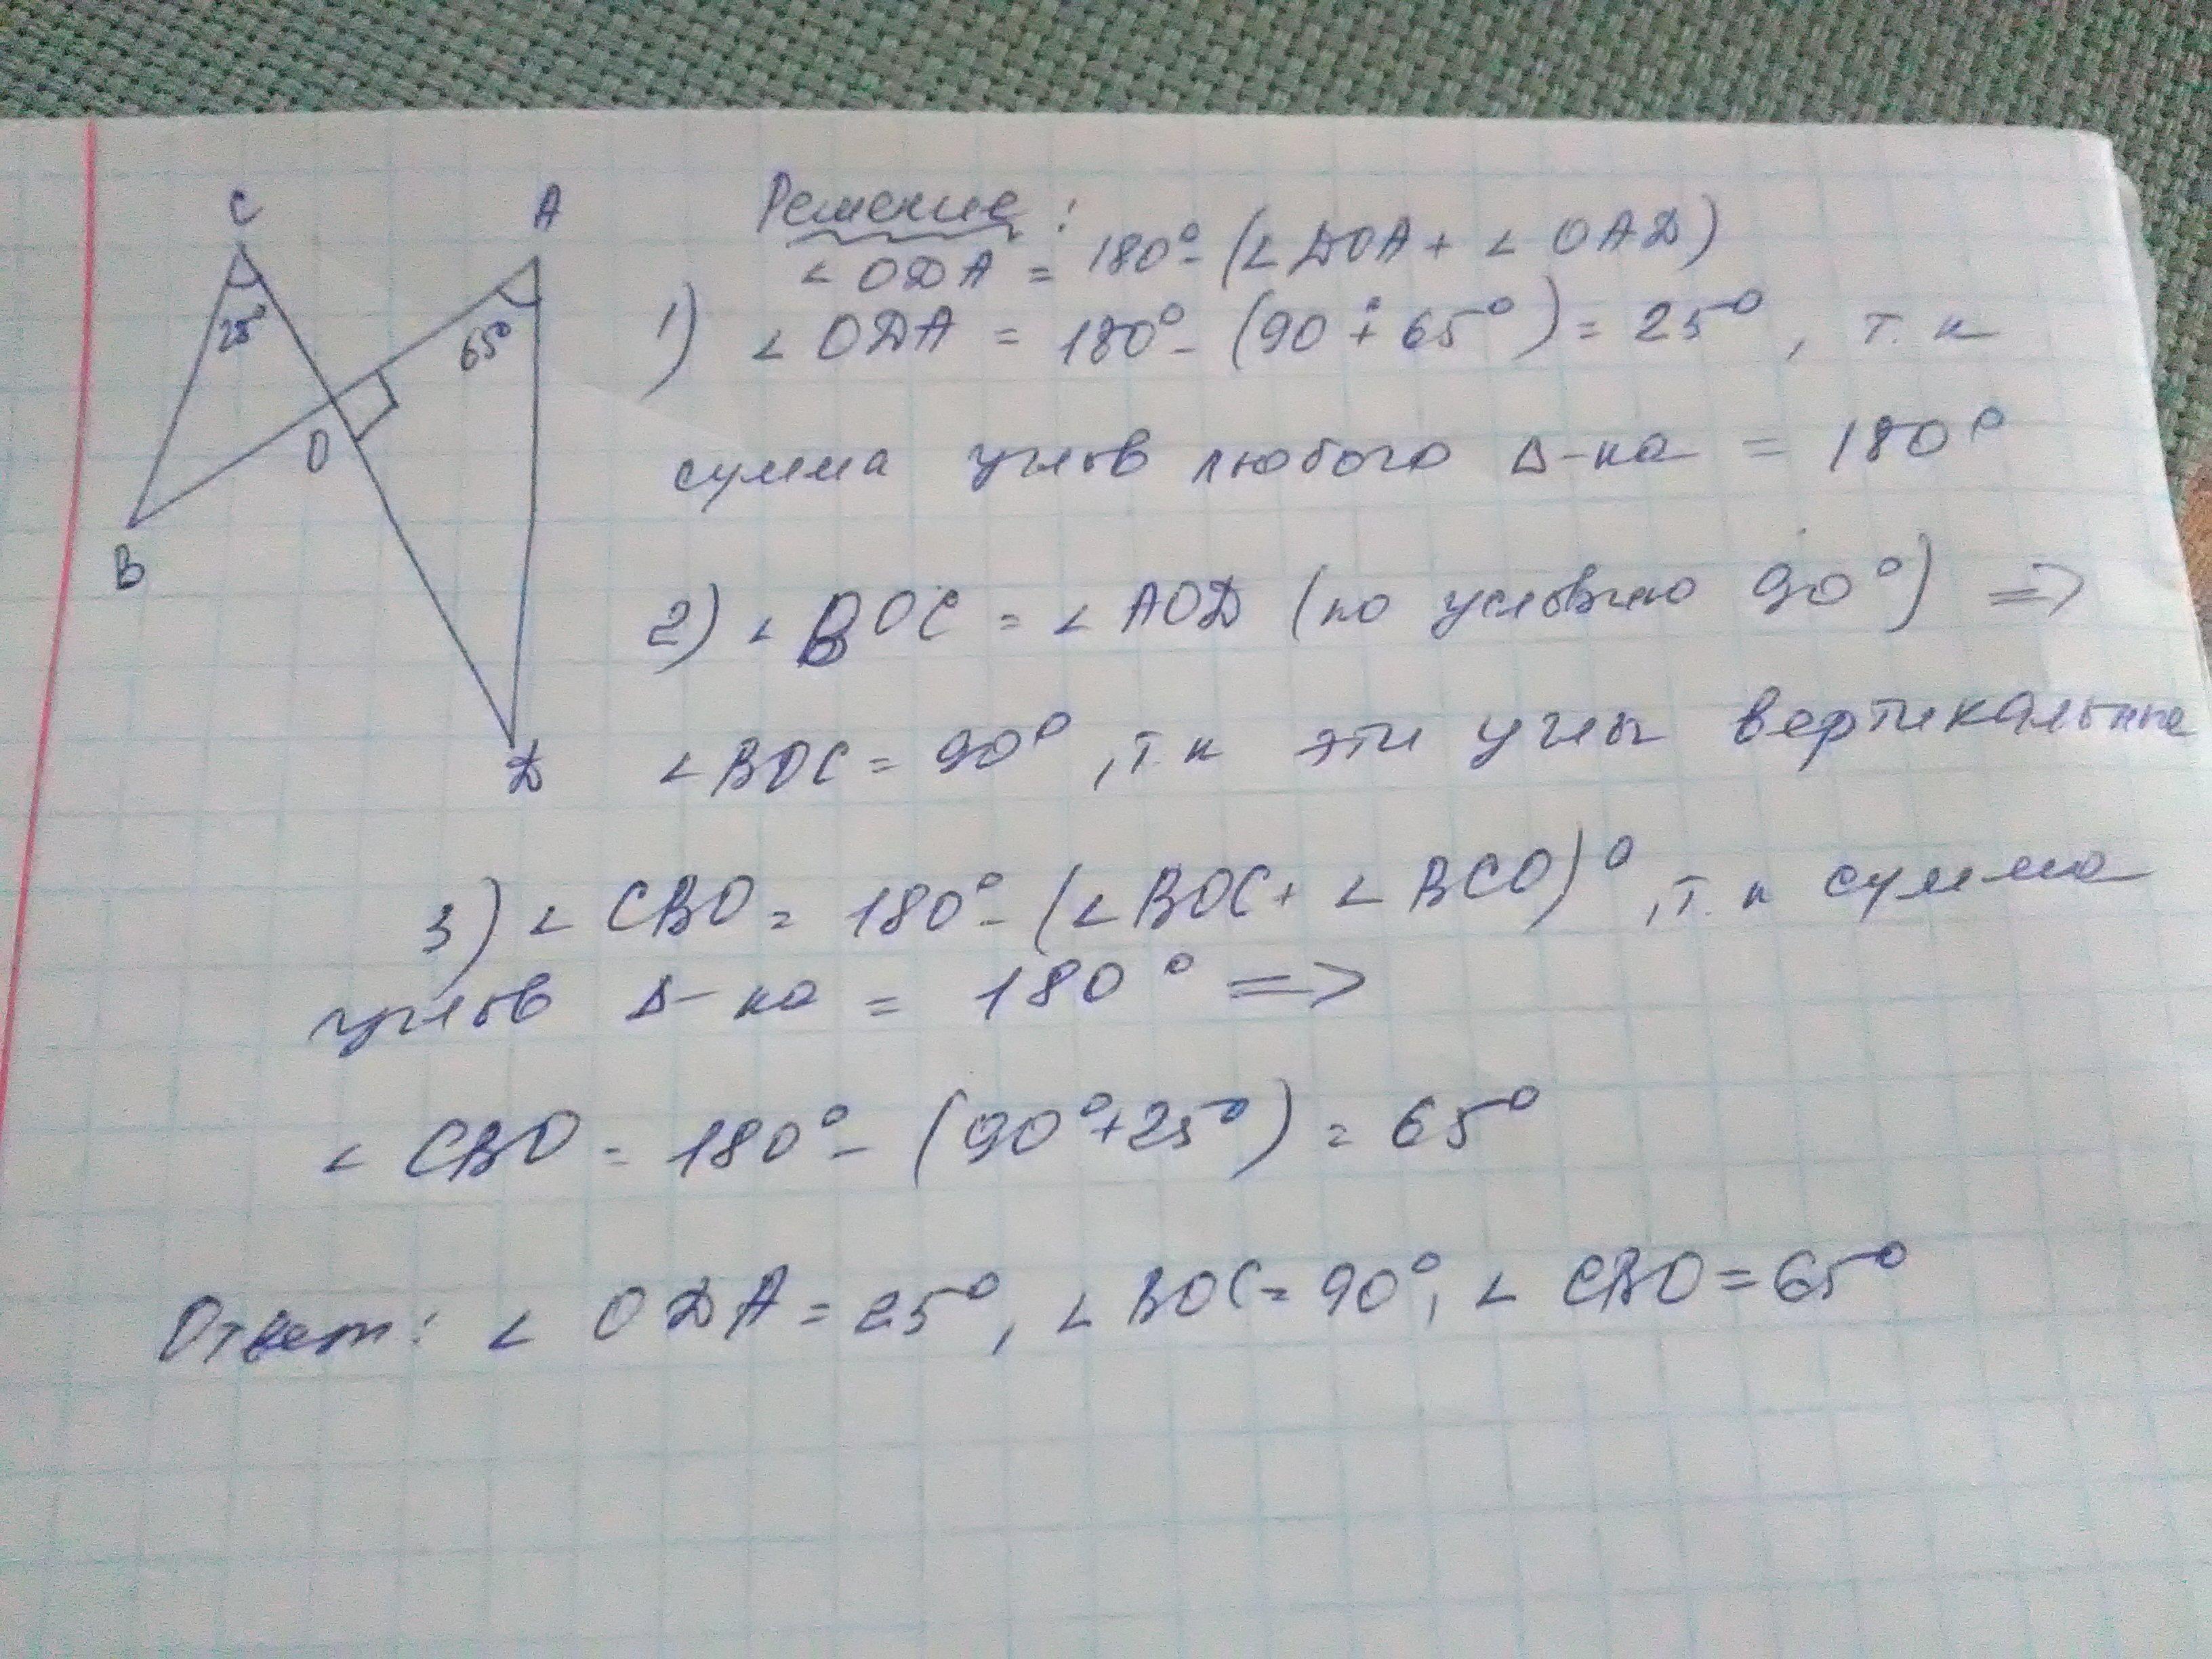 C
A
25°
65°
O
B
D
Решение:
∠ODA = 180° - (∠DOA + ∠OAD)
1) ∠ODA = 180° - (90° + 65°) = 25°, т.к
сумма углов любого Δ-ка = 180°
2) ∠BOC = ∠AOD (по условию 90°) =>
∠BOC = 90°, т.к эти углы вертикальные
3) ∠CBO = 180° - (∠BOC + ∠BCO)°, т.к сумма
углов Δ-ка = 180° =>
∠CBO = 180° - (90° + 25°) = 65°
Ответ: ∠ODA = 25°, ∠BOC = 90°, ∠CBO = 65°